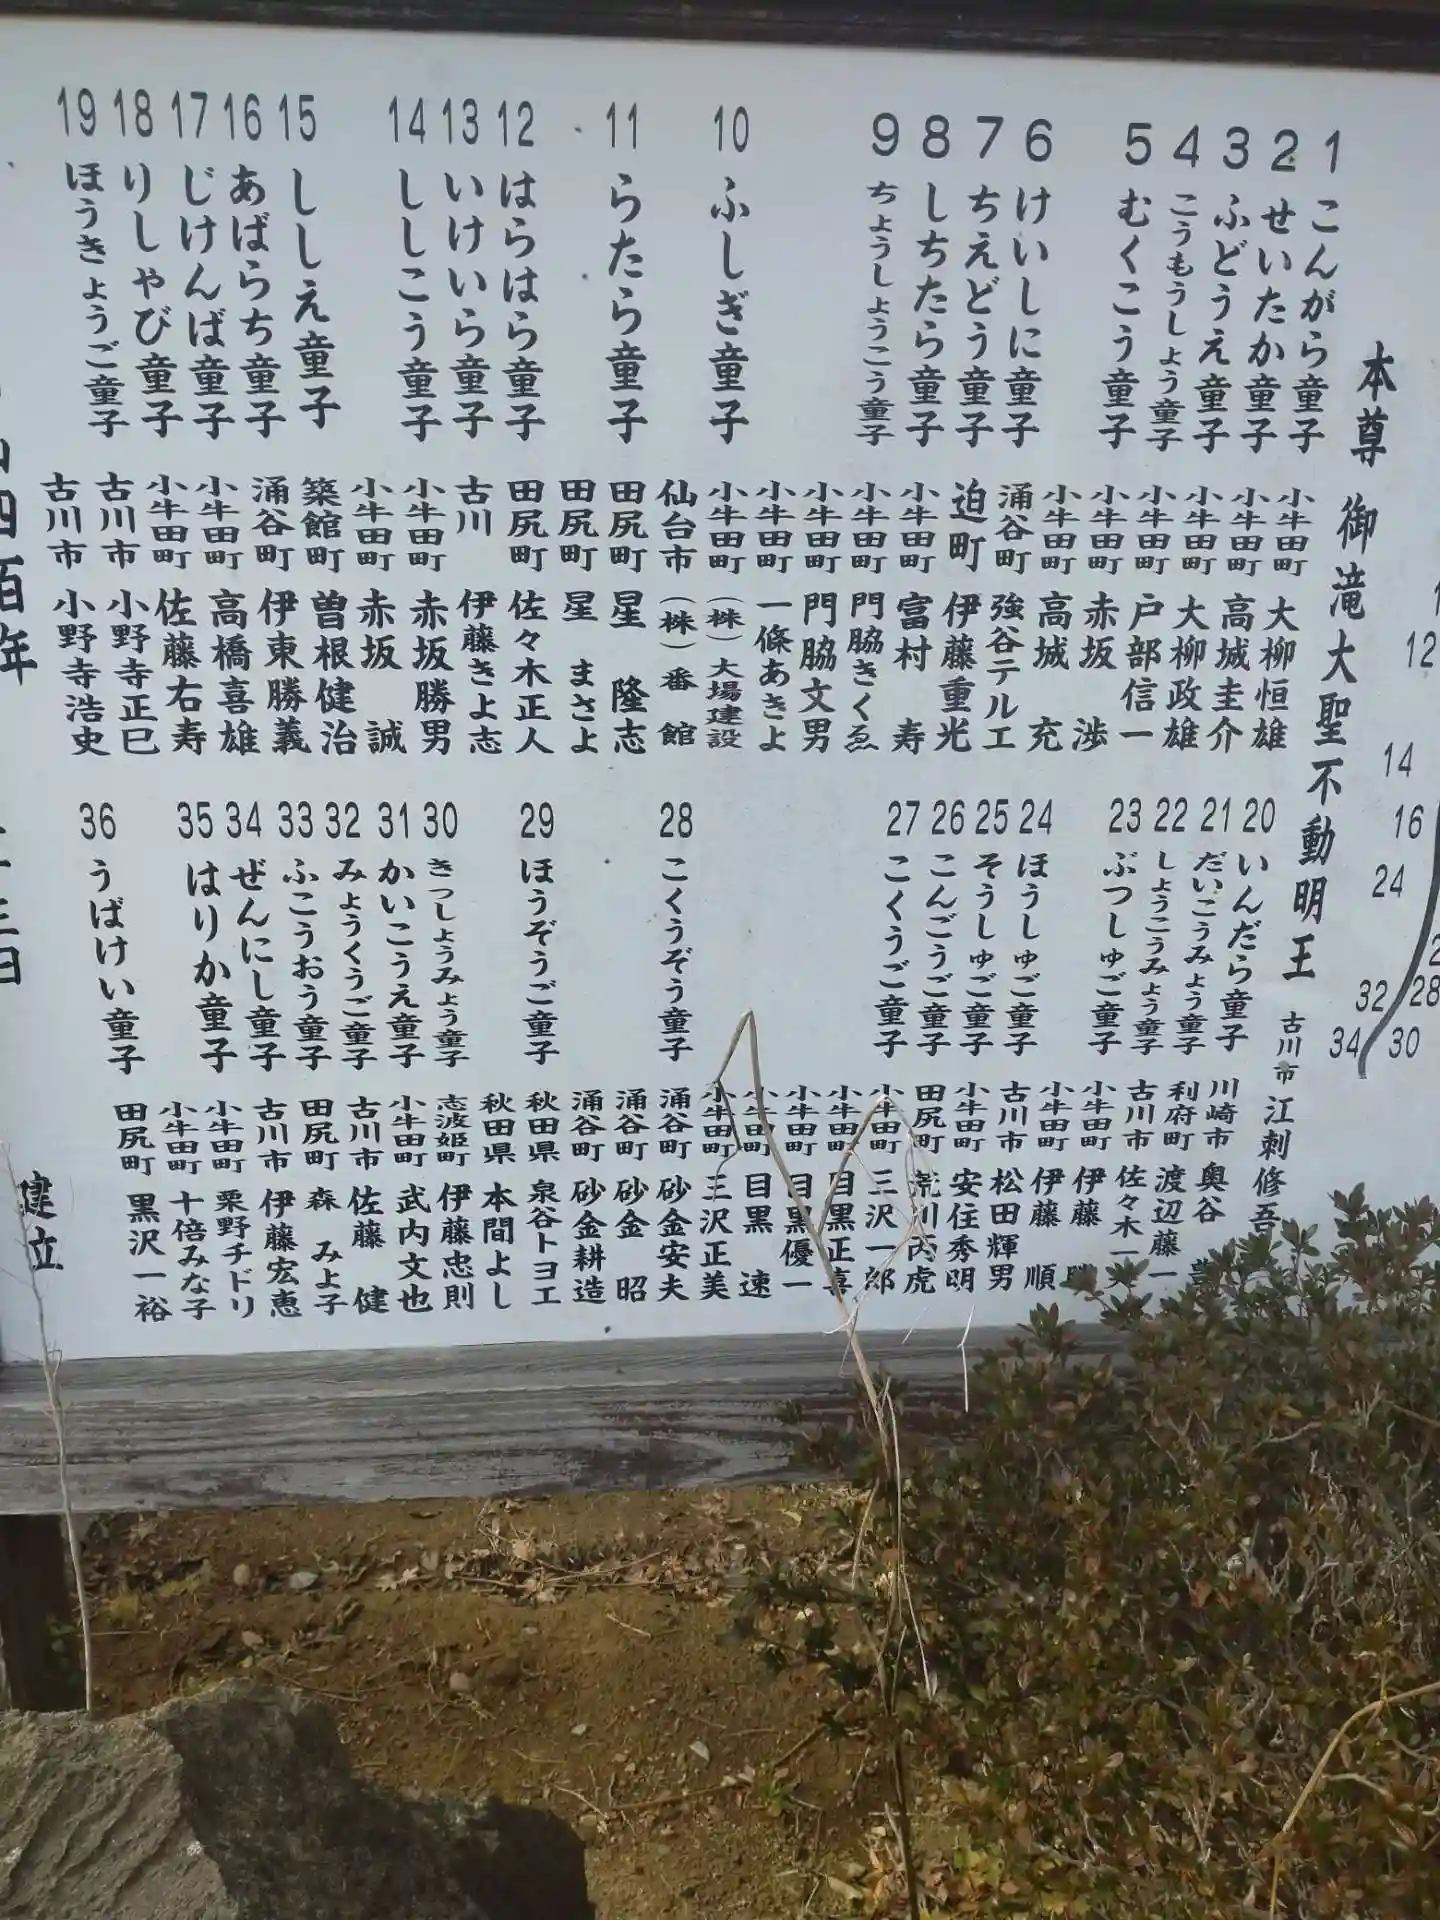 12
14
16
24
28
32
30
34
本尊 御滝大聖不動明王 古川市 江刺修吾
1 こんがら童子
2 せいたか童子
3 ふどうえ童子
4 こうもうしょう童子
5 むくこう童子
6 けいしに童子
7 ちえどう童子
8 しちたら童子
9 ちょうしょうこう童子
10 ふしぎ童子
11 らたら童子
12 はらはら童子
13 いけいら童子
14 ししこう童子
15 ししえ童子
16 あばらち童子
17 じけんば童子
18 りしゃび童子
19 ほうきょうご童子
小牛田町 大柳恒雄
小牛田町 高城圭介
小牛田町 大柳政雄
小牛田町 戸部信一
小牛田町 赤坂 渉
小牛田町 高城 充
涌谷町 強谷テルエ
迫町 伊藤重光
小牛田町 富村 寿
小牛田町 門脇きくゑ
小牛田町 門脇文男
小牛田町 一條あきよ
小牛田町 (株)大場建設
仙台市 (株)番館
田尻町 星 隆志
田尻町 星 まさよ
田尻町 佐々木正人
古川 伊藤きよ志
小牛田町 赤坂勝男
小牛田町 赤坂 誠
築館町 曽根健治
涌谷町 伊東勝義
小牛田町 高橋喜雄
小牛田町 佐藤右寿
古川市 小野寺正巳
古川市 小野寺浩史
20 いんだら童子
21 だいこうみょう童子
22 しょうこうみょう童子
23 ぶつしゅご童子
24 ほうしゅご童子
25 そうしゅご童子
26 こんごうご童子
27 こくうご童子
28 こくうぞう童子
29 ほうぞうご童子
30 きつしょうみょう童子
31 かいこうえ童子
32 みょうくうご童子
33 ふこうおう童子
34 ぜんにし童子
35 はりか童子
36 うばけい童子
川崎市 奥谷
利府町 渡辺藤一
古川市 佐々木一
小牛田町 伊藤
小牛田町 伊藤 順
古川市 松田輝男
小牛田町 安住秀明
田尻町 荒川丙虎
小牛田町 三沢一郎
小牛田町 目黒正喜
小牛田町 目黒優一
小牛田町 目黒 速
小牛田町 三沢正美
涌谷町 砂金安夫
涌谷町 砂金 昭
涌谷町 砂金耕造
秋田県 泉谷トヨエ
秋田県 本間よし
志波姫町 伊藤忠則
小牛田町 武内文也
古川市 佐藤 健
田尻町 森 みよ子
古川市 伊藤宏恵
小牛田町 栗野チドリ
小牛田町 十倍みな子
田尻町 黒沢一裕
四百年
三日
建立